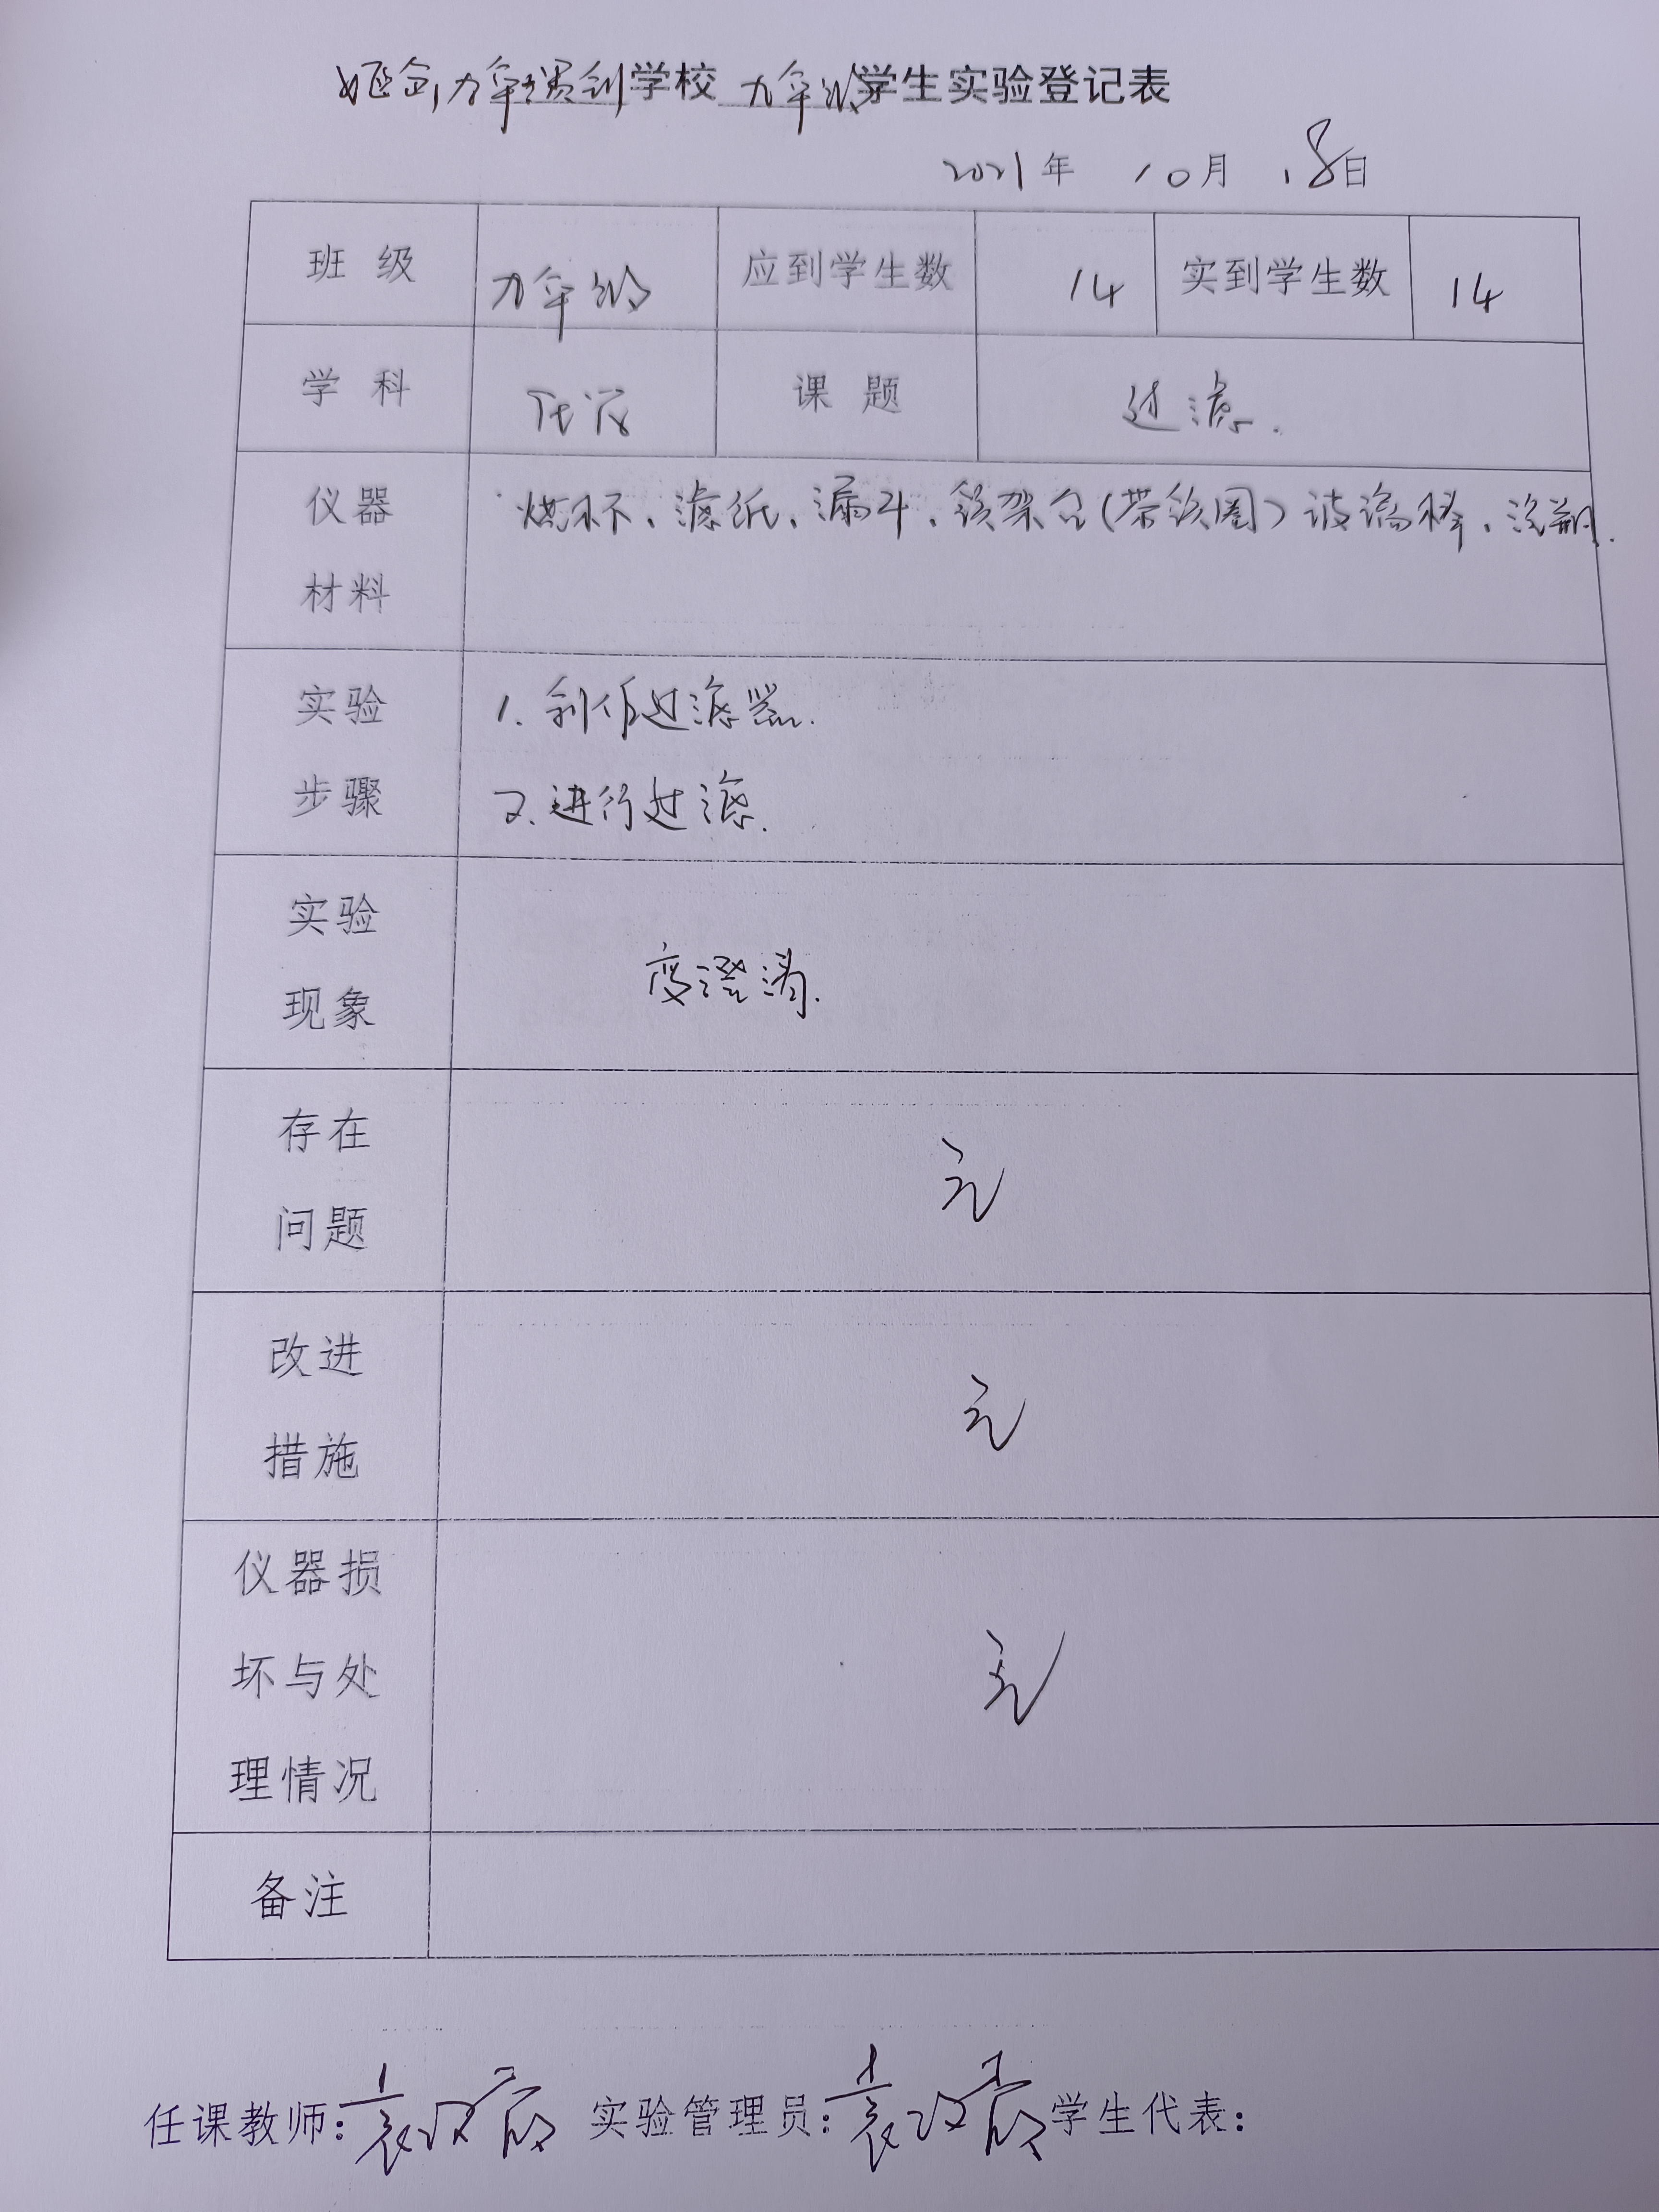 九年一贯制学校 九年级学生实验登记表
2021年 10月 18日
班级 九年级 应到学生数 14 实到学生数 14
学科 化学 课题 过滤.
仪器
材料
烧杯、滤纸、漏斗、铁架台(带铁圈)玻璃棒、
实验
步骤
1. 制作过滤器.
2. 进行过滤.
实验
现象
变澄清.
存在
问题
无
改进
措施
无
仪器损
坏与处
理情况
无
备注
任课教师: 实验管理员: 学生代表: